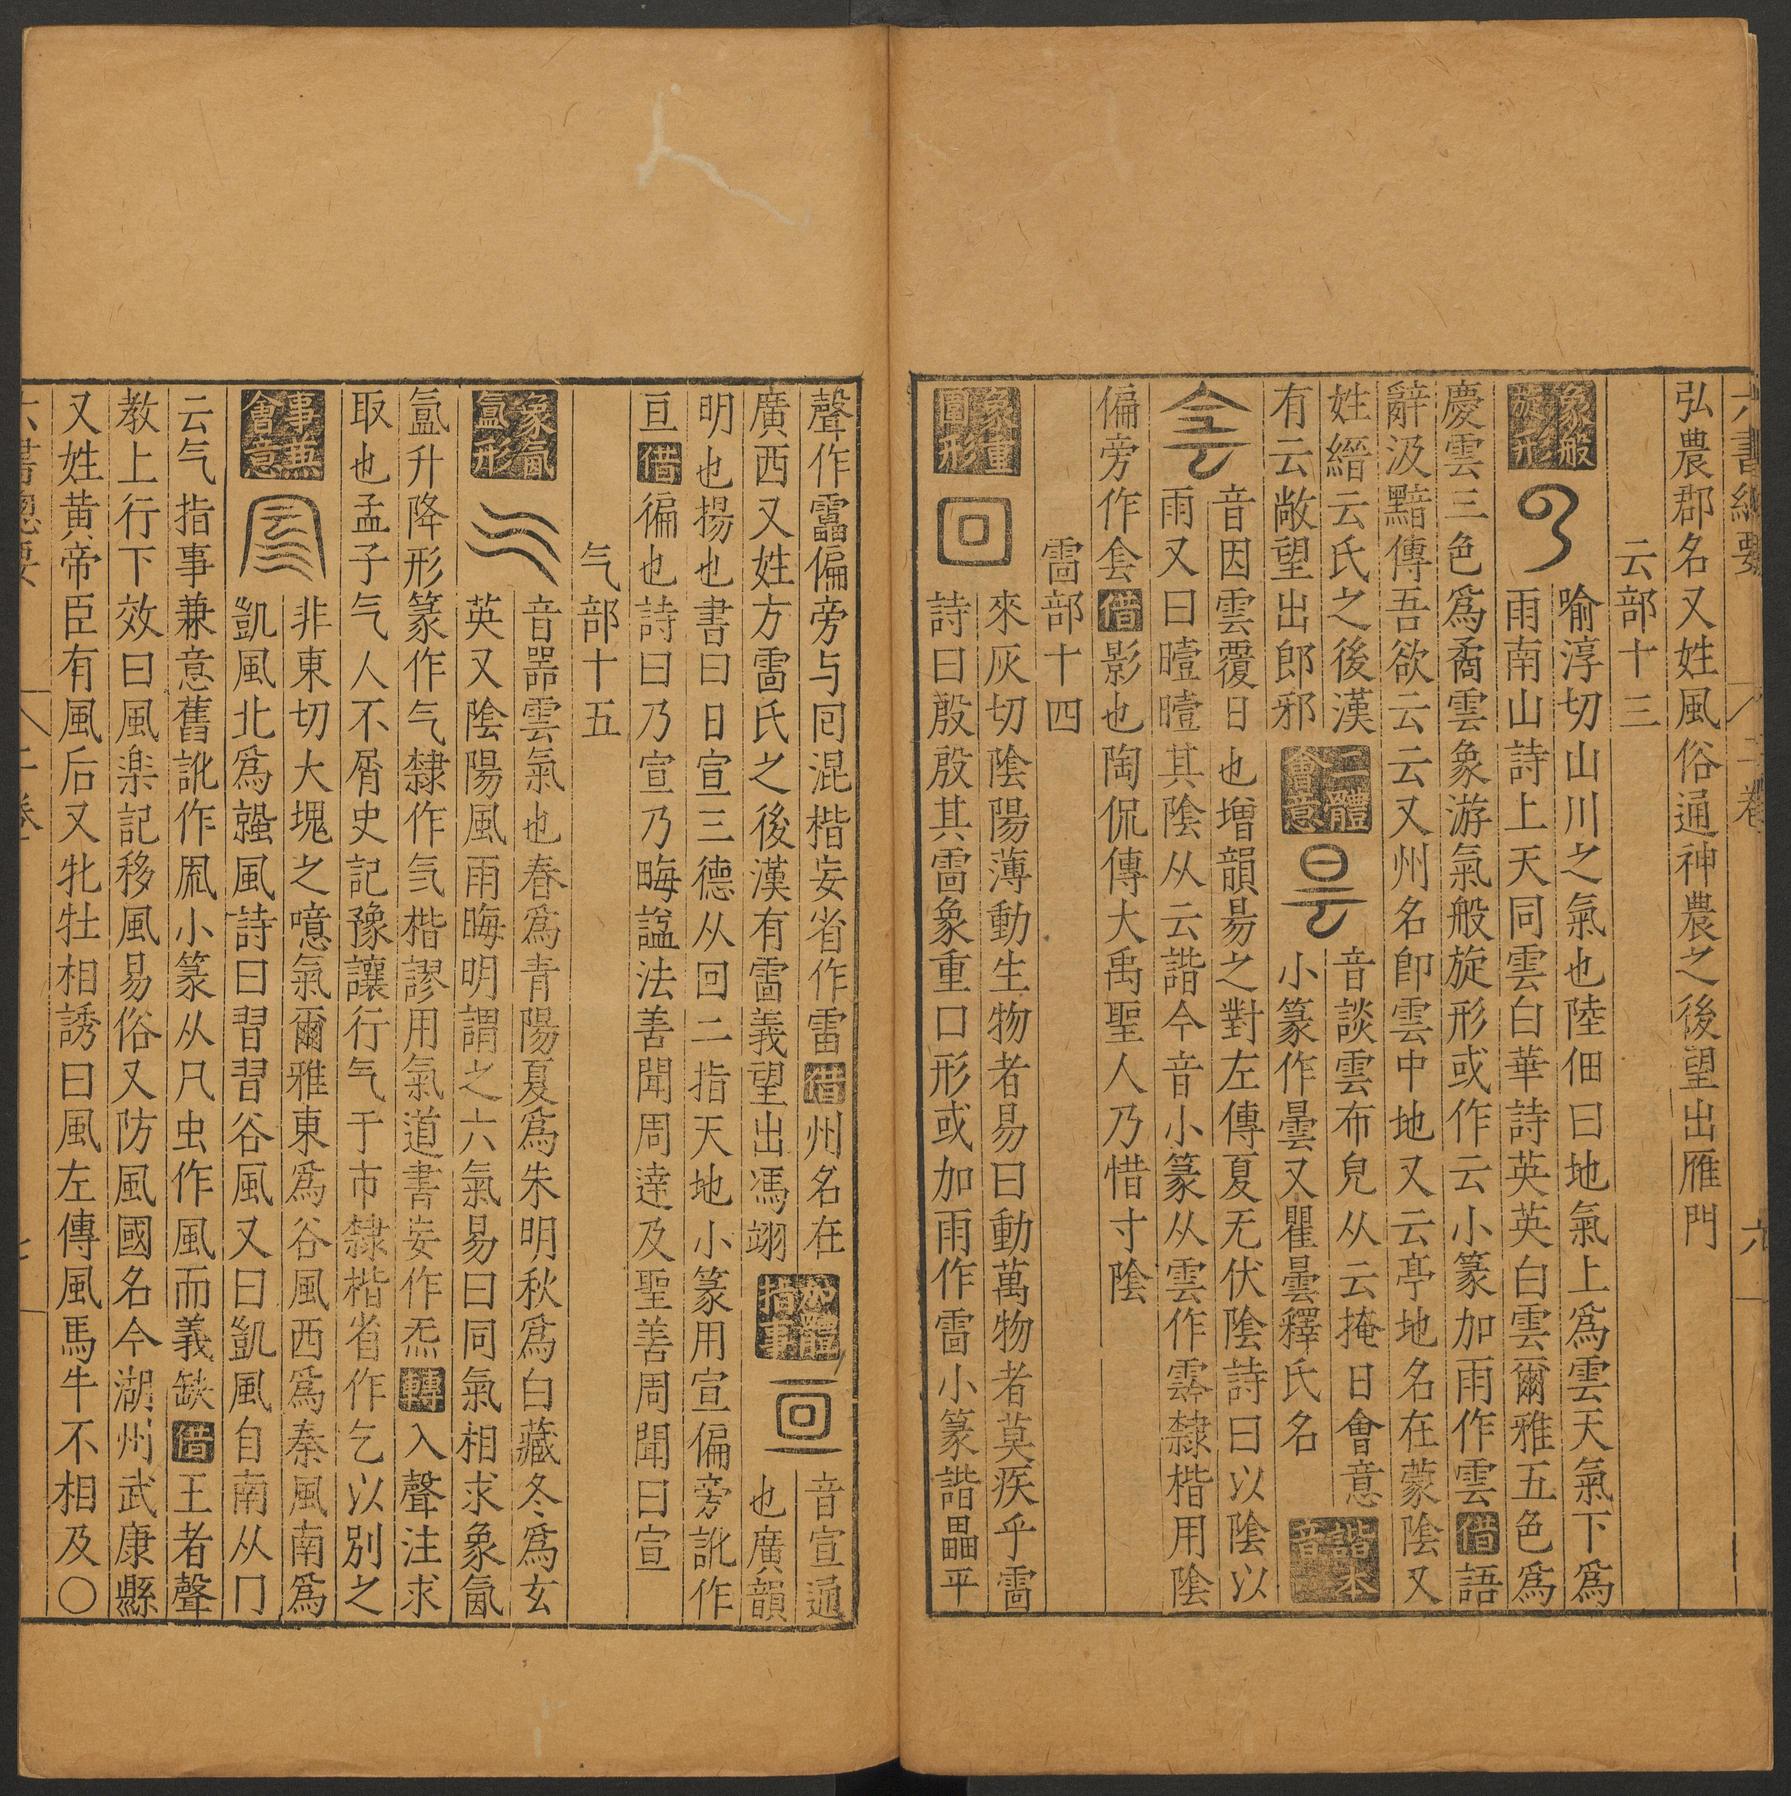 六書總要 一卷 六
弘農郡名又姓風俗通神農之後望出雁門
云部十三
象般旋形
喻淳切山川之氣也陸佃曰地氣上爲雲天氣下爲
雨南山詩上天同雲白華詩英英白雲爾雅五色爲
慶雲三色爲矞雲象游氣般旋形或作云小篆加雨作雲借語
辭汲黯傳吾欲云云又州名卽雲中地又云亭地名在蒙陰又
姓縉云氏之後漢
有云敞望出郎邪
二體會意
音談雲布皃从云掩日會意
小篆作曇又瞿曇釋氏名
諧本音
音因雲覆日也增韻昜之對左傳夏无伏陰詩曰以陰以
雨又曰曀曀其陰从云諧今音小篆从雲作霒隸楷用陰
偏旁作侌借影也陶侃傳大禹聖人乃惜寸陰
畾部十四
象重圍形
來灰切陰陽薄動生物者易曰動萬物者莫疾乎雷
詩曰殷殷其雷象重口形或加雨作雷小篆諧畾平
聲作靁偏旁与囘混楷妄省作雷借州名在
廣西又姓方雷氏之後漢有雷義望出馮翊
加體指事
音宣通
也廣韻
明也揚也書曰日宣三德从回二指天地小篆用宣偏旁訛作
亘借徧也詩曰乃宣乃畮諡法善聞周達及聖善周聞曰宣
气部十五
象氤氳形
音器雲氣也春爲青陽夏爲朱明秋爲白藏冬爲玄
英又陰陽風雨晦明謂之六氣易曰同氣相求象氤
氳升降形篆作气隸作気楷謬用氣道書妄作炁轉入聲注求
取也孟子气人不屑史記豫讓行气于市隸楷省作乞以別之
事兼會意
非東切大塊之噫氣爾雅東爲谷風西爲泰風南爲
凱風北爲飈風詩曰習習谷風又曰凱風自南从冂
云气指事兼意舊訛作凬小篆从凡虫作風而義缺借王者聲
教上行下效曰風樂記移風易俗又防風國名今湖州武康縣
又姓黄帝臣有風后又牝牡相誘曰風左傳風馬牛不相及○
六書總要 一卷 七